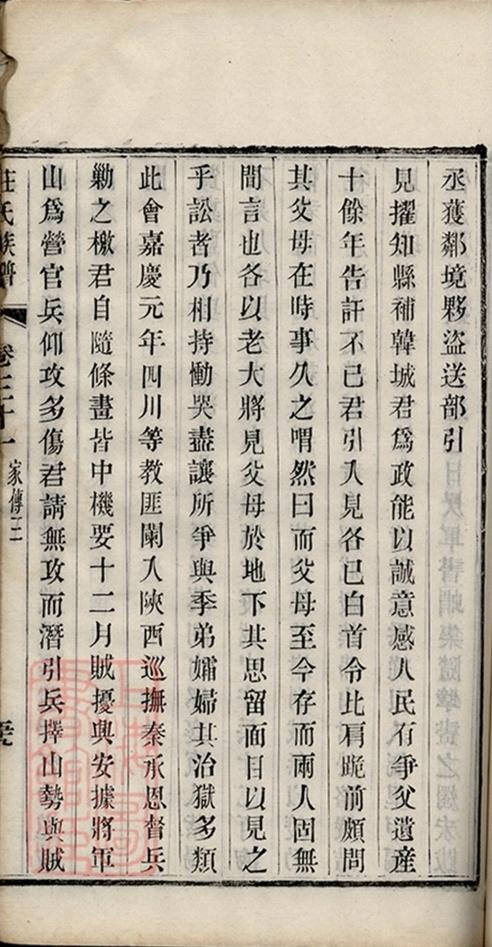 丞獲鄰境夥盜送部引
見擢知縣補韓城君爲政能以誠意感人民有爭父遺産
十餘年告訐不已君引入見各已白首令比肩跪前頗問
其父母在時事久之喟然曰而父母至今存而兩人固無
間言也各以老大將見父母於地下其思留面目以見之
乎訟者乃相持慟哭盡讓所爭與季弟孀婦其治獄多類
此會嘉慶元年四川等教匪闌入陝西巡撫秦承恩督兵
勦之檄君自隨條畫皆中機要十二月賊擾興安據將軍
山爲營官兵仰攻多傷君請無攻而潛引兵擇山勢與賊
莊氏族譜
卷二十一
家傳二